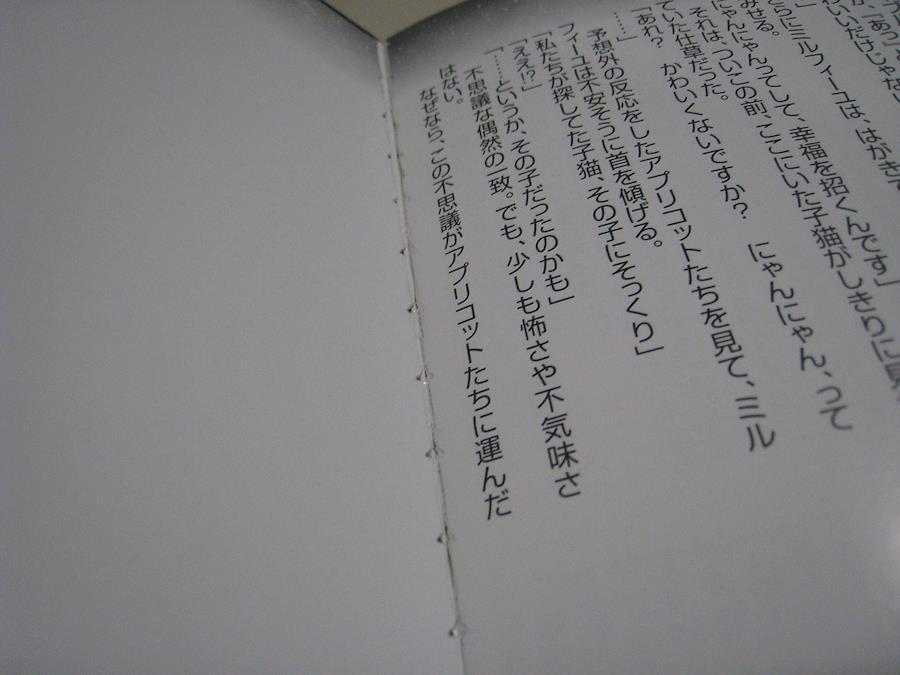 か、「あっ」
いいだけじゃない
」
らにミルフィーユは、はがき
にゃんにゃんってして、幸福を招くんです」
みせる。
それは、ついこの前、ここにいた子猫がしきりに見
ていた仕草だった。
「あれ? かわいくないですか? にゃんにゃん、って
……」
予想外の反応をしたアプリコットたちを見て、ミル
フィーユは不安そうに首を傾げる。
「私たちが探してた子猫、その子にそっくり」
「ええ!?」
「……というか、その子だったのかも」
不思議な偶然の一致。でも、少しも怖さや不気味さ
はない。
なぜなら、この不思議がアプリコットたちに運んだ